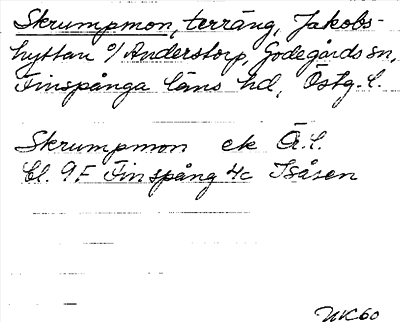 Skrumpmon, terräng, Jakobs-
hyttan o/ Anderstorp, Godegårds sn,
Finspånga läns hd, Östg. l.
Skrumpmon ek Ö.l.
bl. 9F Finspång 4c Isåsen
NK60